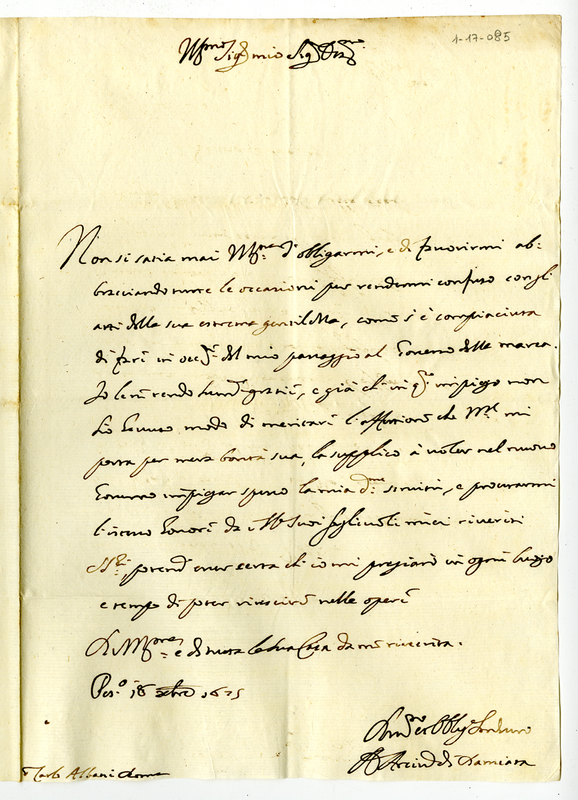 1-17-085
Ill.mo Sig.r mio Sig.r
Non si satia mai d'obligarmi, e di favorirmi ab:
bracciando tutte le occasioni per rendermi confuso con gl'
atti della sua estrema gentilezza, come s'è compiaciuta
di fare in occ.ne del mio passaggio al Governo della Marca.
Io le ne rendo gratie, e già che in q.to impiego non
hò hauuto modo di meritare l'affettione che mi
porta per mera bontà sua, la supplico à voler nel nuouo
Gouerno impiegar spesso la mia seruitù, e procurarmi
l'istesso honore da suoi figliuoli miei riueriti
certa che io mi pregiarò in ogni luogo
e tempo di poter riuscire nelle opere
e di tutta la sua Casa da me riuerita.
Pes.o 18 1675
Aff.mo et Obblig.
di Damiata
Carlo Albani Roma